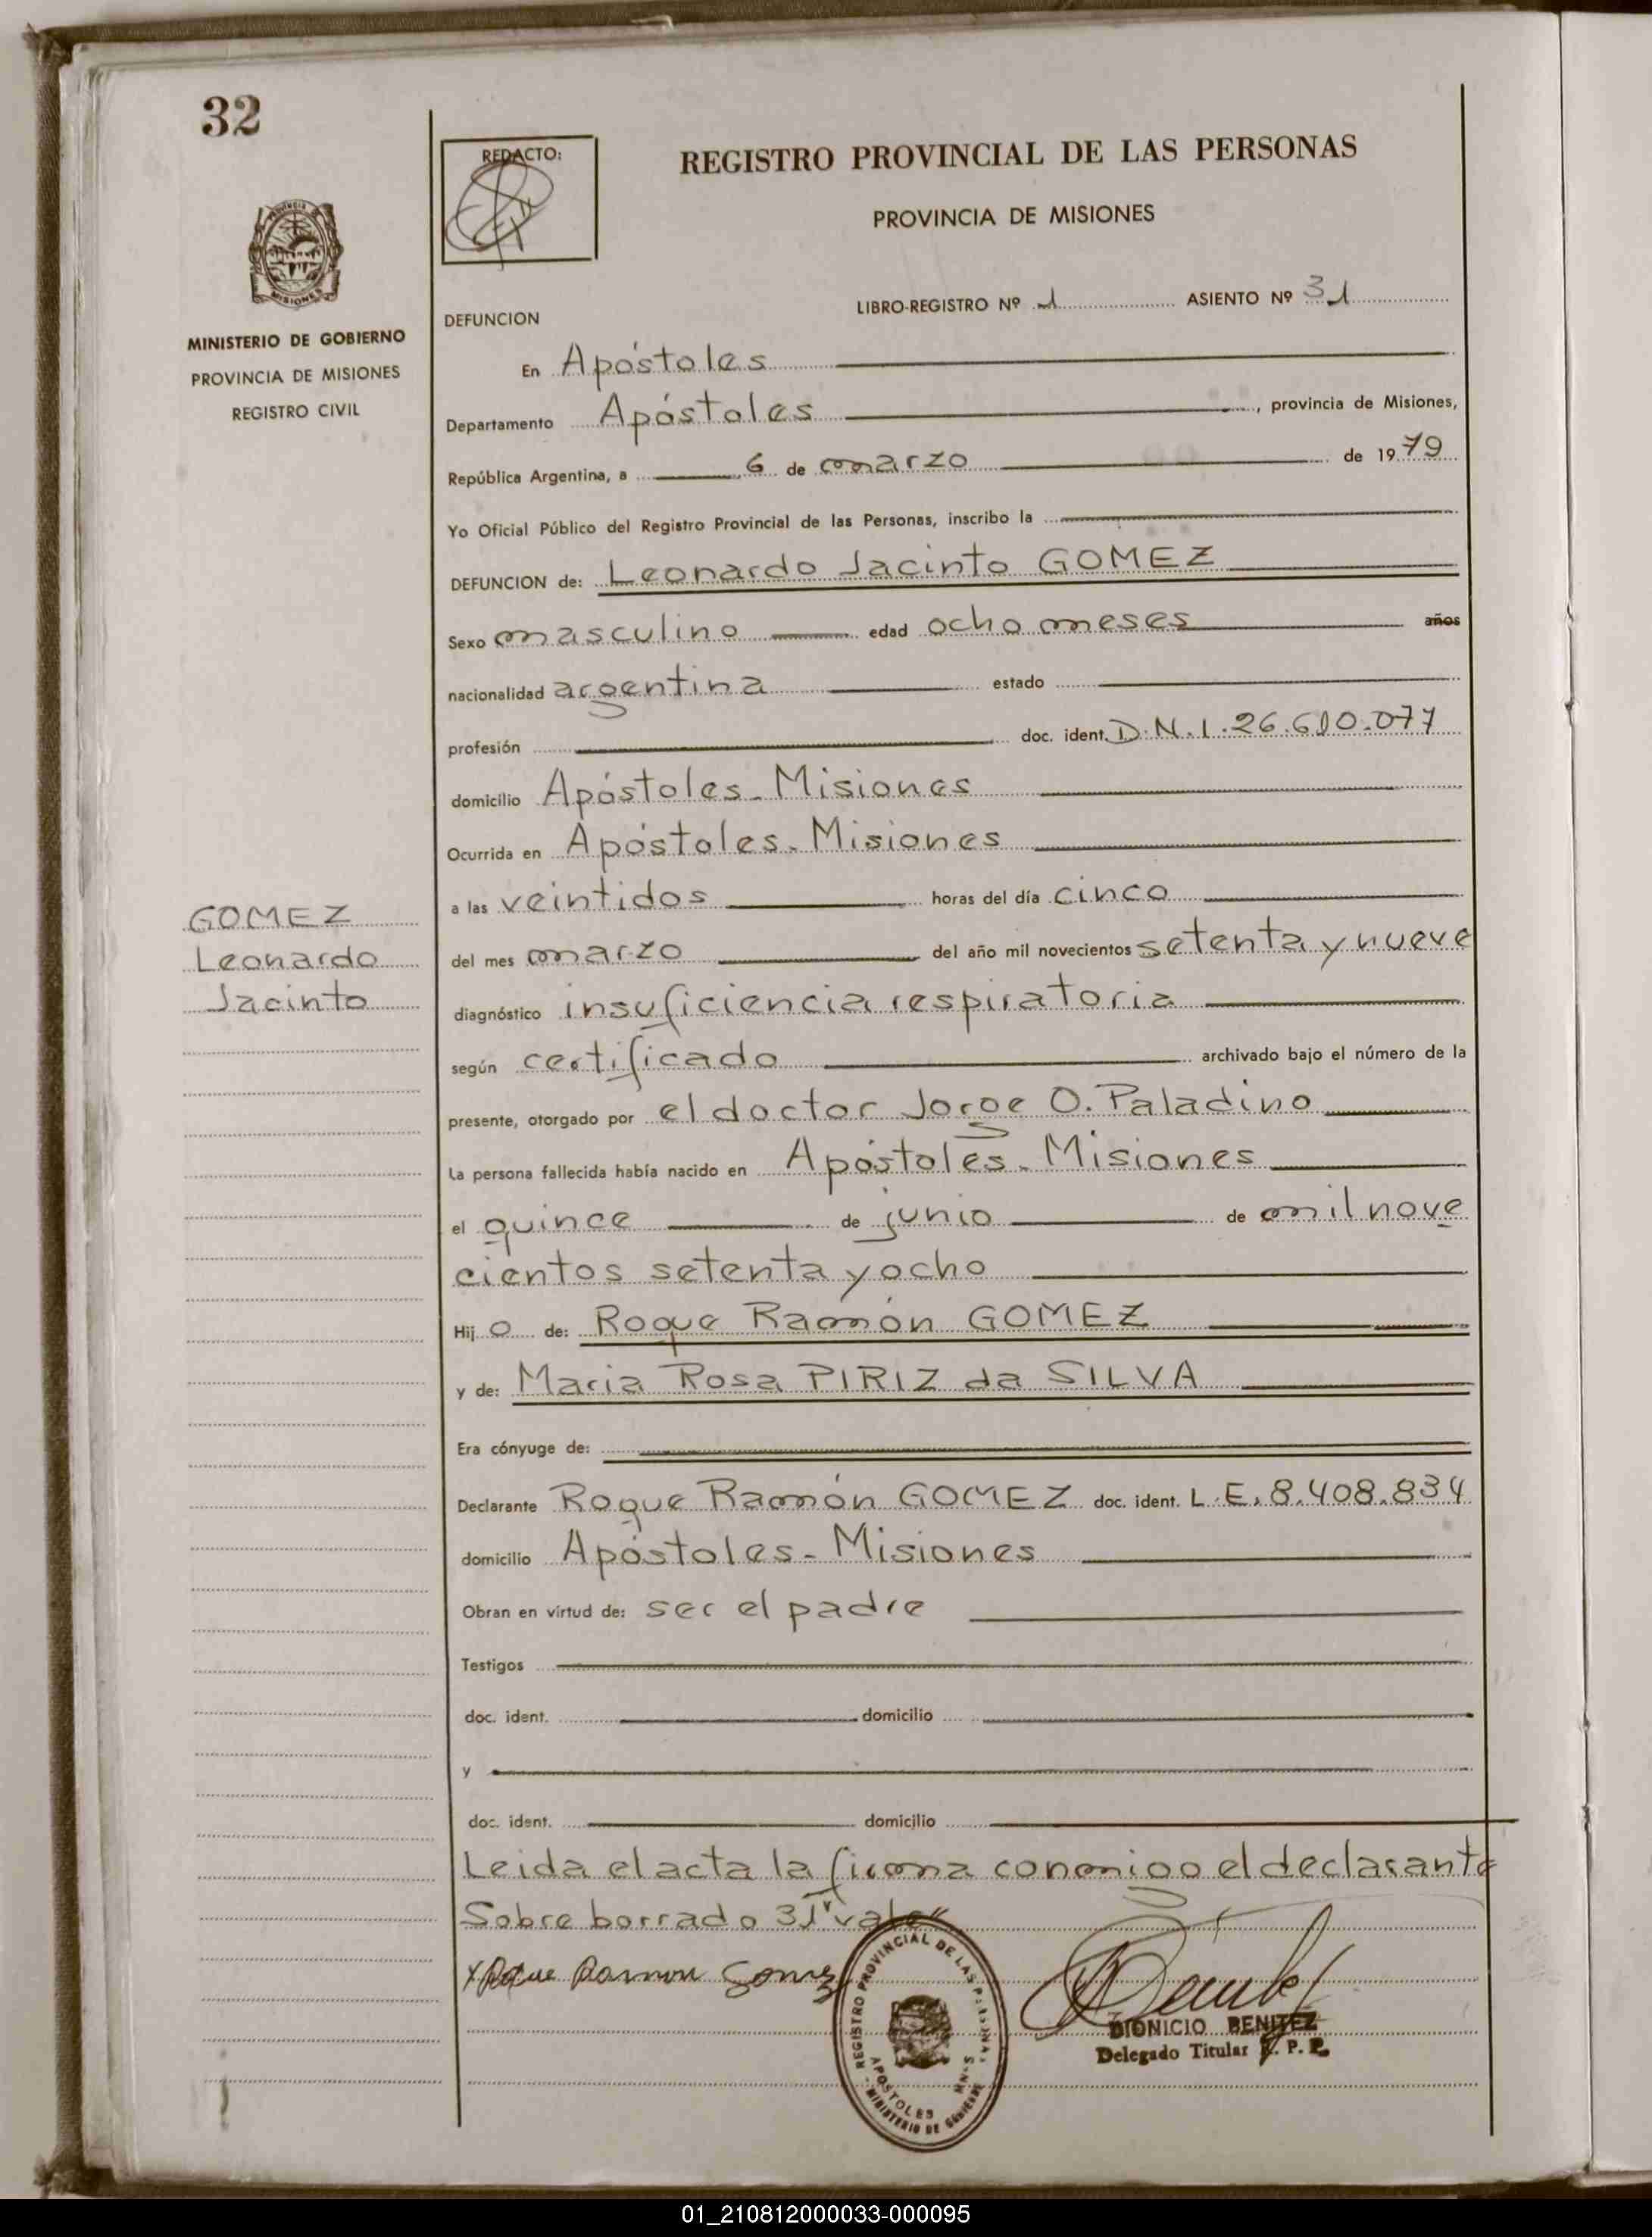 32
REDACTO:
REGISTRO PROVINCIAL DE LAS PERSONAS
PROVINCIA DE MISIONES
PROVINCIA DE
MISIONES
MINISTERIO DE GOBIERNO
PROVINCIA DE MISIONES
REGISTRO CIVIL
LIBRO-REGISTRO Nº 1 ASIENTO Nº 31
DEFUNCION
En Apóstoles
Departamento Apóstoles, provincia de Misiones,
República Argentina, a 6 de marzo de 1979
Yo Oficial Público del Registro Provincial de las Personas, inscribo la
DEFUNCION de: Leonardo Jacinto GOMEZ
Sexo masculino edad ocho meses años
nacionalidad argentina estado
profesión doc. ident. D.N.I. 26.610.077
domicilio Apóstoles - Misiones
Ocurrida en Apóstoles - Misiones
a las veintidos horas del día cinco
del mes marzo del año mil novecientos setenta y nueve
GOMEZ
Leonardo
Jacinto
diagnóstico insuficiencia respiratoria
según certificado archivado bajo el número de la
presente, otorgado por el doctor Jorge O. Paladino
La persona fallecida había nacido en Apóstoles - Misiones
el quince de junio de mil nove
cientos setenta y ocho
Hijo de: Roque Ramón GOMEZ
y de: Maria Rosa PIRIZ da SILVA
Era cónyuge de:
Declarante Roque Ramón GOMEZ doc. ident. L.E. 8.408.834
domicilio Apóstoles - Misiones
Obran en virtud de: ser el padre
Testigos
doc. ident. domicilio
y
doc. ident. domicilio
Leida el acta la firma conmigo el declarante
Sobre borrado 31 "vale"
x Roque Ramon Gomez
REGISTRO PROVINCIAL DE LAS PERSONAS
APOSTOLES MNES
MINISTERIO DE GOBIERNO
DIONICIO BENITEZ
Delegado Titular R. P. P.
01_210812000033-000095